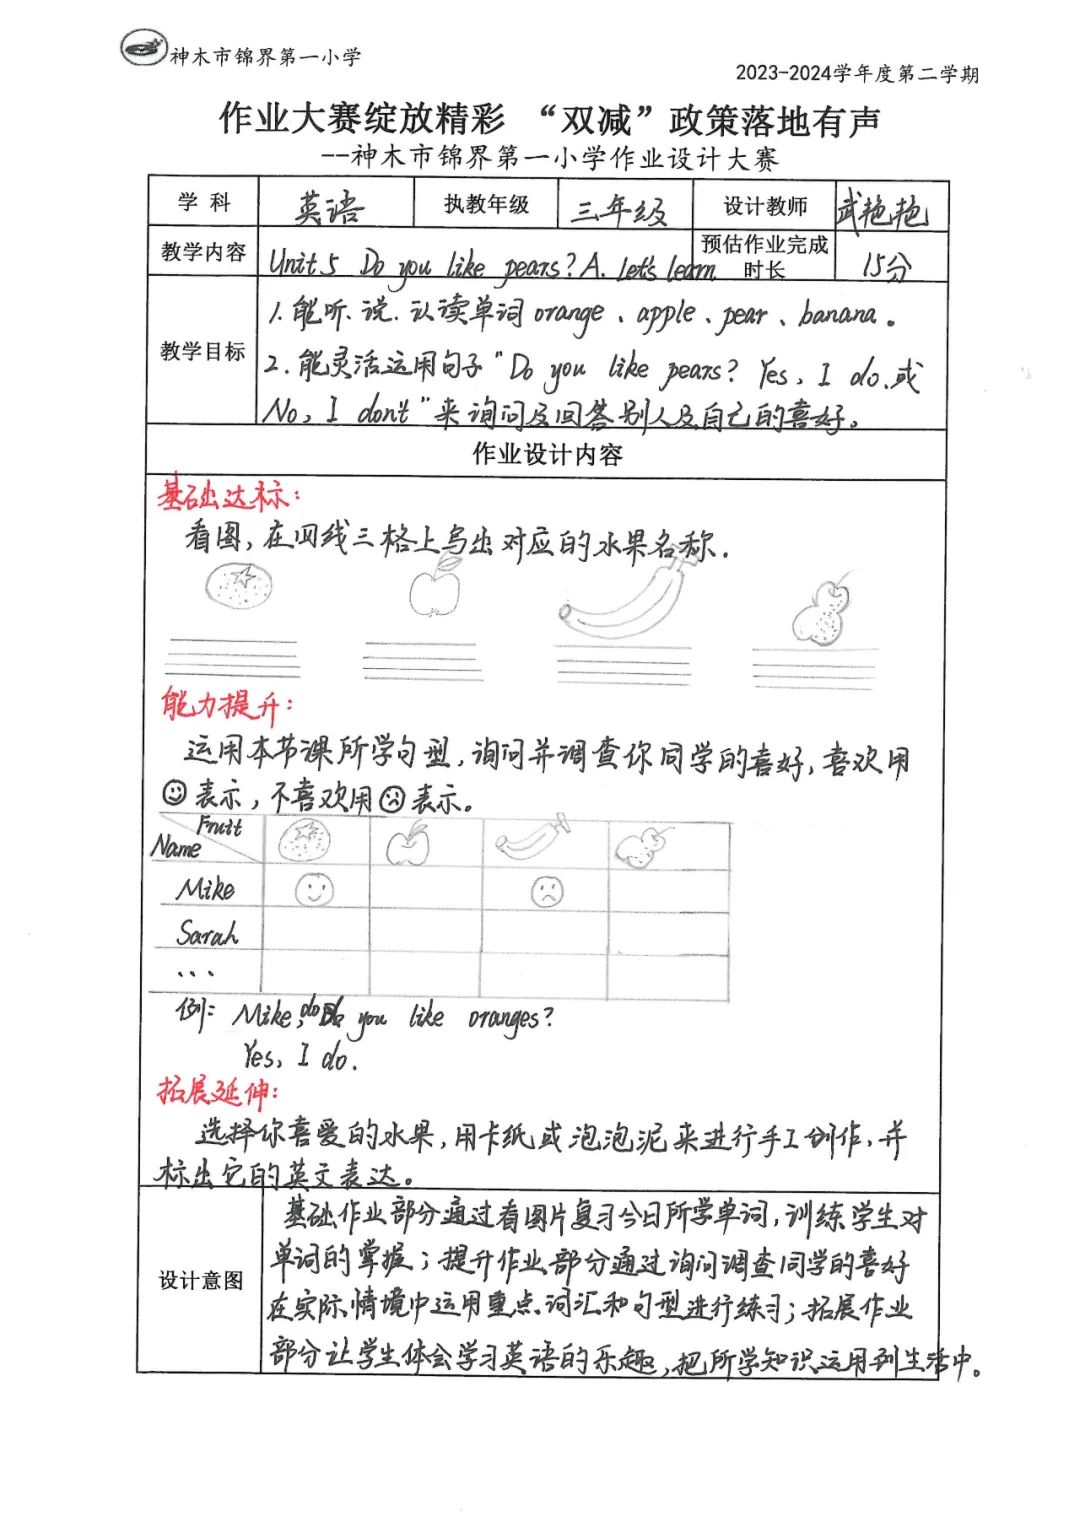 神木市锦界第一小学
2023-2024学年度第二学期
作业大赛绽放精彩 “双减”政策落地有声
--神木市锦界第一小学作业设计大赛
学 科 英语 执教年级 三年级 设计教师 武艳艳
教学内容 Unit 5 Do you like pears? A. let's learn 预估作业完成时长 15分
教学目标
1. 能听、说、认读单词 orange、apple、pear、banana。
2. 能灵活运用句子"Do you like pears? Yes, I do.或
No, I don't"来询问及回答别人及自己的喜好。
作业设计内容
基础达标:
看图,在四线三格上写出对应的水果名称.
能力提升:
运用本节课所学句型,询问并调查你同学的喜好,喜欢用
☺表示,不喜欢用☹表示。
Fruit
Name
Mike
Sarah
...
例: Mike, do you like oranges?
Yes, I do.
拓展延伸:
选择你喜爱的水果,用卡纸或泡泡泥来进行手工创作,并
标出它的英文表达。
设计意图
基础作业部分通过看图片复习今日所学单词,训练学生对
单词的掌握;提升作业部分通过询问调查同学的喜好
在实际情境中运用重点词汇和句型进行练习;拓展作业
部分让学生体会学习英语的乐趣,把所学知识运用到生活中。